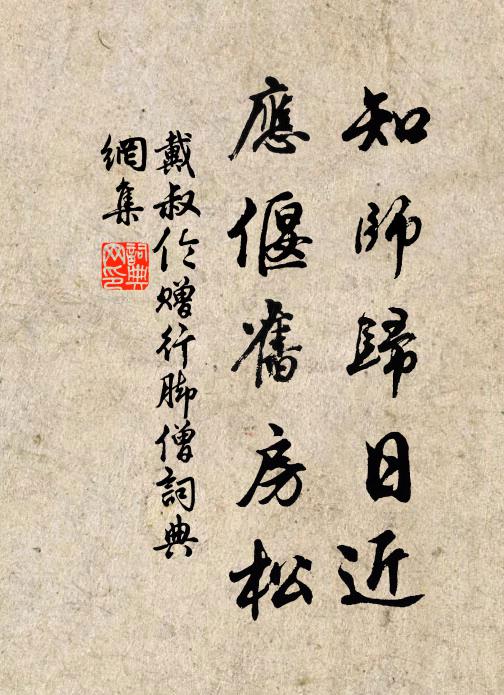 知師歸日近
應偃舊房松
戴叔伦贈行脚僧詞典
網集
詞典网印